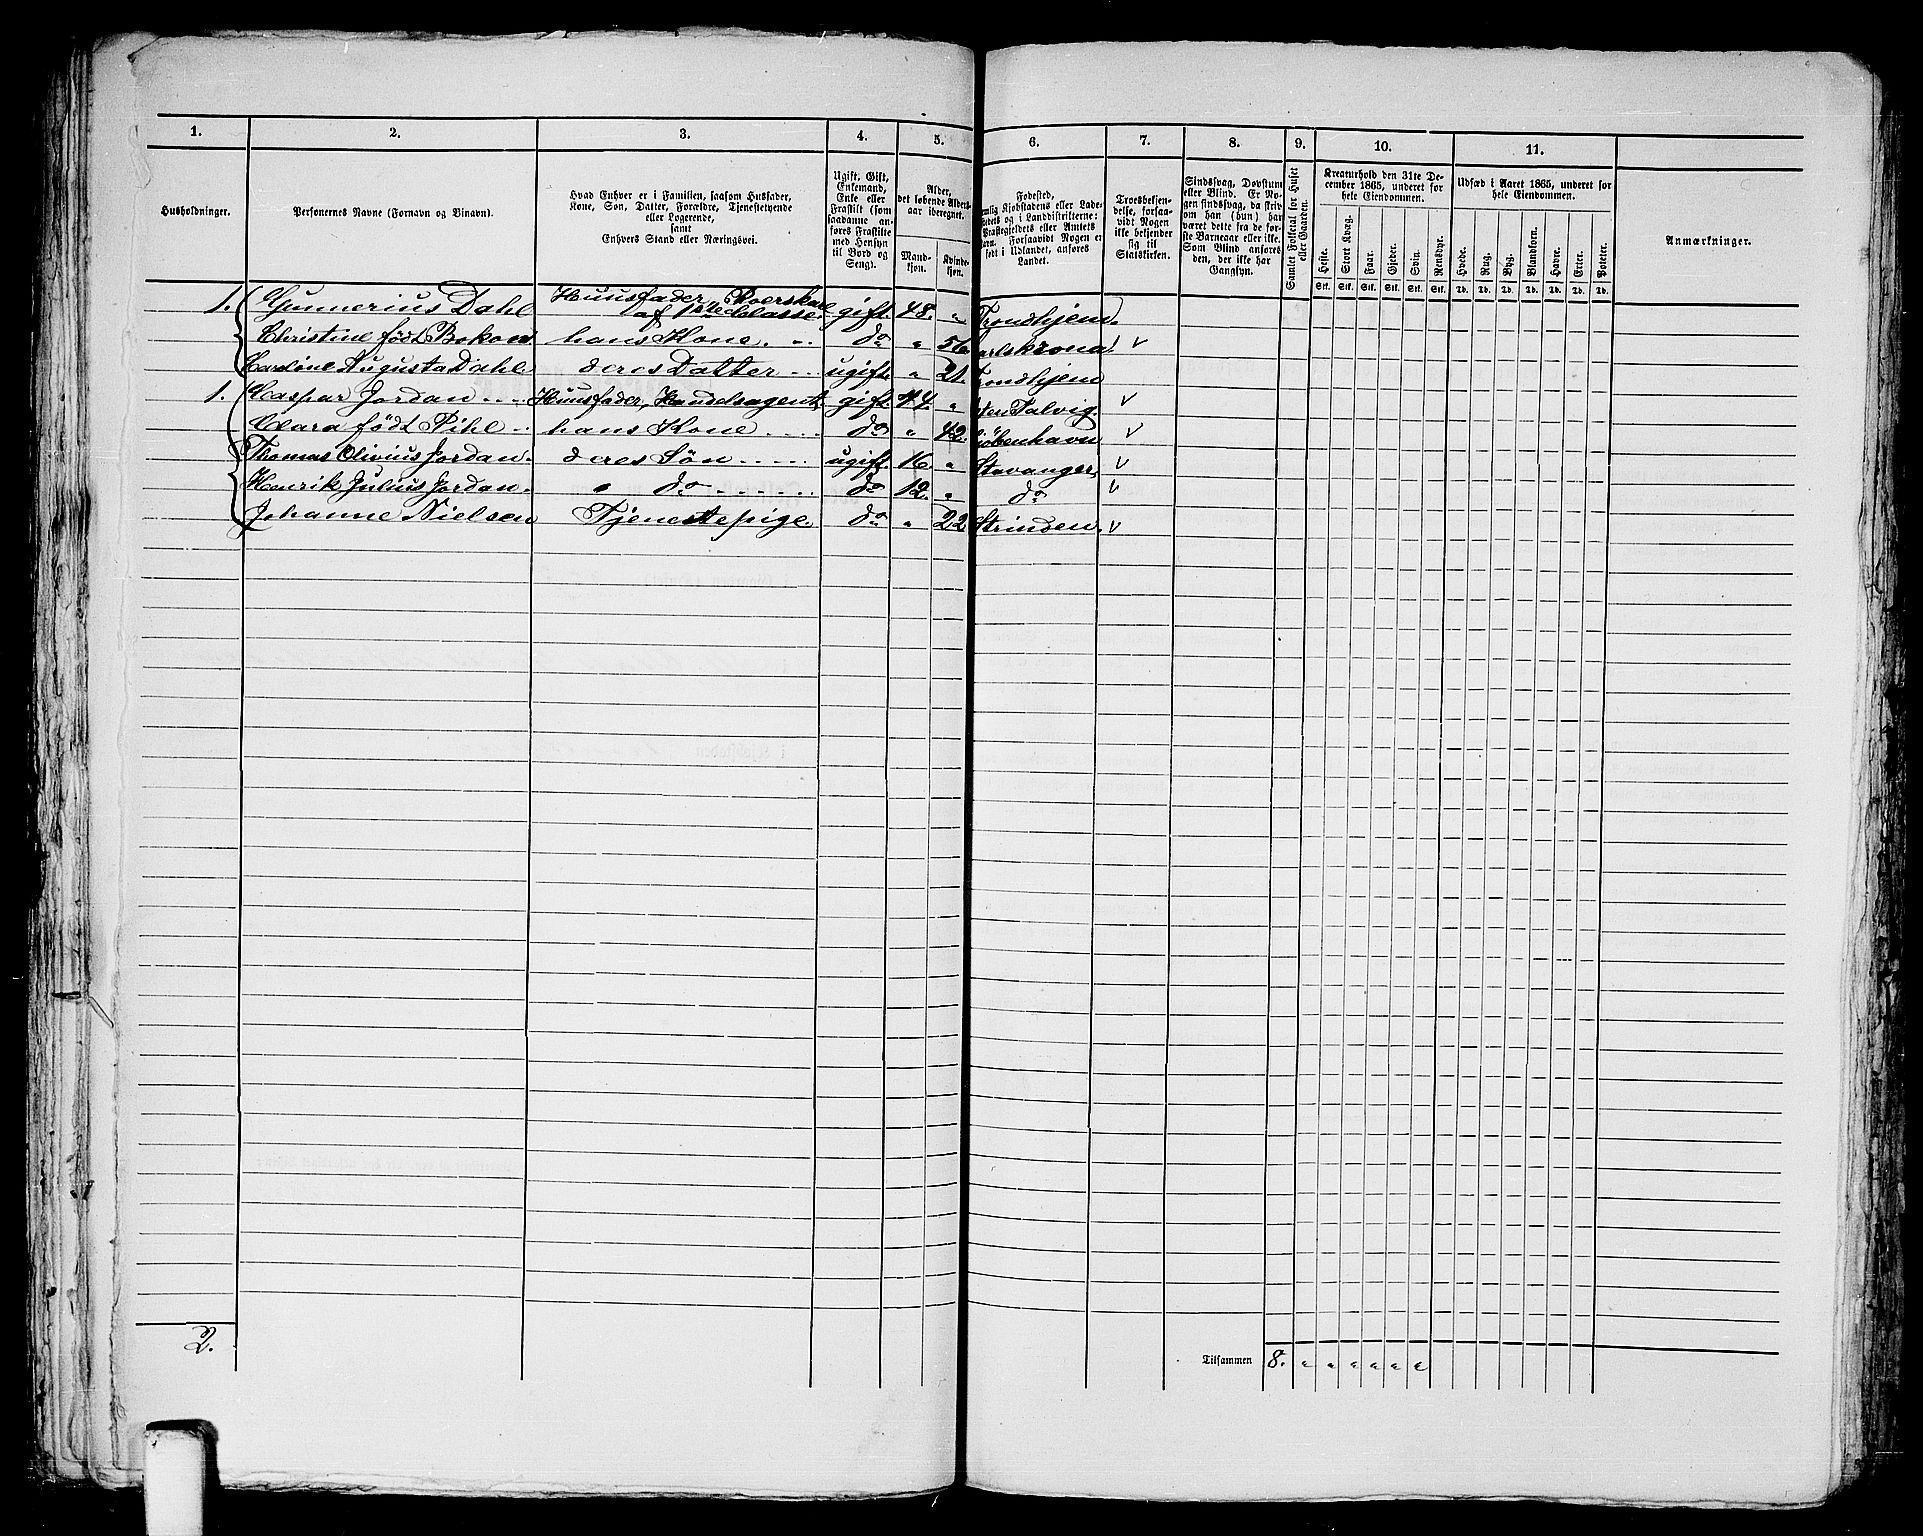 1. 2. 3. 4. 5. 6. 7. 8. 9. 10. 11.
Husholdninger.
Personernes Navne (Fornavn og Binavn).
Hvad Enhver er i Familien, saasom Husfader,
Kone, Søn, Datter, Forældre, Tjenestetyende
eller Logerende,
samt
Enhvers Stand eller Næringsvei.
Ugift, Gift,
Enkemand,
Enke eller
Fraskilt (som
saadanne anføres
Fraskilte
med Hensyn
til Bord og
Seng).
Alder,
det løbende Alders-
aar iberegnet.
Mand-
kjøn.
Kvinde-
kjøn.
Fødested,
nemlig Kjøbstadens eller Lade-
stedets og i Landdistrikterne:
Præstegjeldets eller Amtets
Navn. Forsaavidt Nogen er
født i Udlandet, anføres
Landet.
Troesbekjen-
delse, forsaa-
vidt Nogen
ikke bekjender
sig til
Statskirken.
Sindssvag, Døvstum
eller Blind. Er No-
gen sindssvag, da skriv
om han (hun) har
været dette fra de før-
ste Barneaar eller ikke.
Som Blind anføres
den, der ikke har
Gangsyn.
Samlet Folketal for Huset
eller Gaarden.
Kreaturhold den 31te De-
cember 1865, underet for
hele Eiendommen.
Heste. Stort Kvæg. Faar. Gjeder. Svin. Rensdyr.
Stk. Stk. Stk. Stk. Stk. Stk.
Udsæd i Aaret 1865, underet for
hele Eiendommen.
Hvede. Rug. Byg. Blandkorn. Havre. Erter. Poteter.
Td. Td. Td. Td. Td. Td. Td.
Anmærkninger.
1. Gunnerius Dahl Huusfader, Roerskarl af 1ste Classe. gift. 48. " Trondhjem.
Christine født hans Kone. do " 56. Carlskrona.
Caroline Augusta Dahl deres Datter ugift. " 21. Trondhjem
1. Caspar Jordan Huusfader, Handelsagent, gift. 44. " Talvig.
Clara født Pihl hans Kone do " 42. Kjøbenhavn
Thomas Olivius Jordan. deres Søn ugift. 16. " Stavanger,
Henrik Julius Jordan. " do do 12. " do
Johanne Nielsen Tjenestepige. do " 22. Strinden.
2. Tilsammen 8. " " " " " "